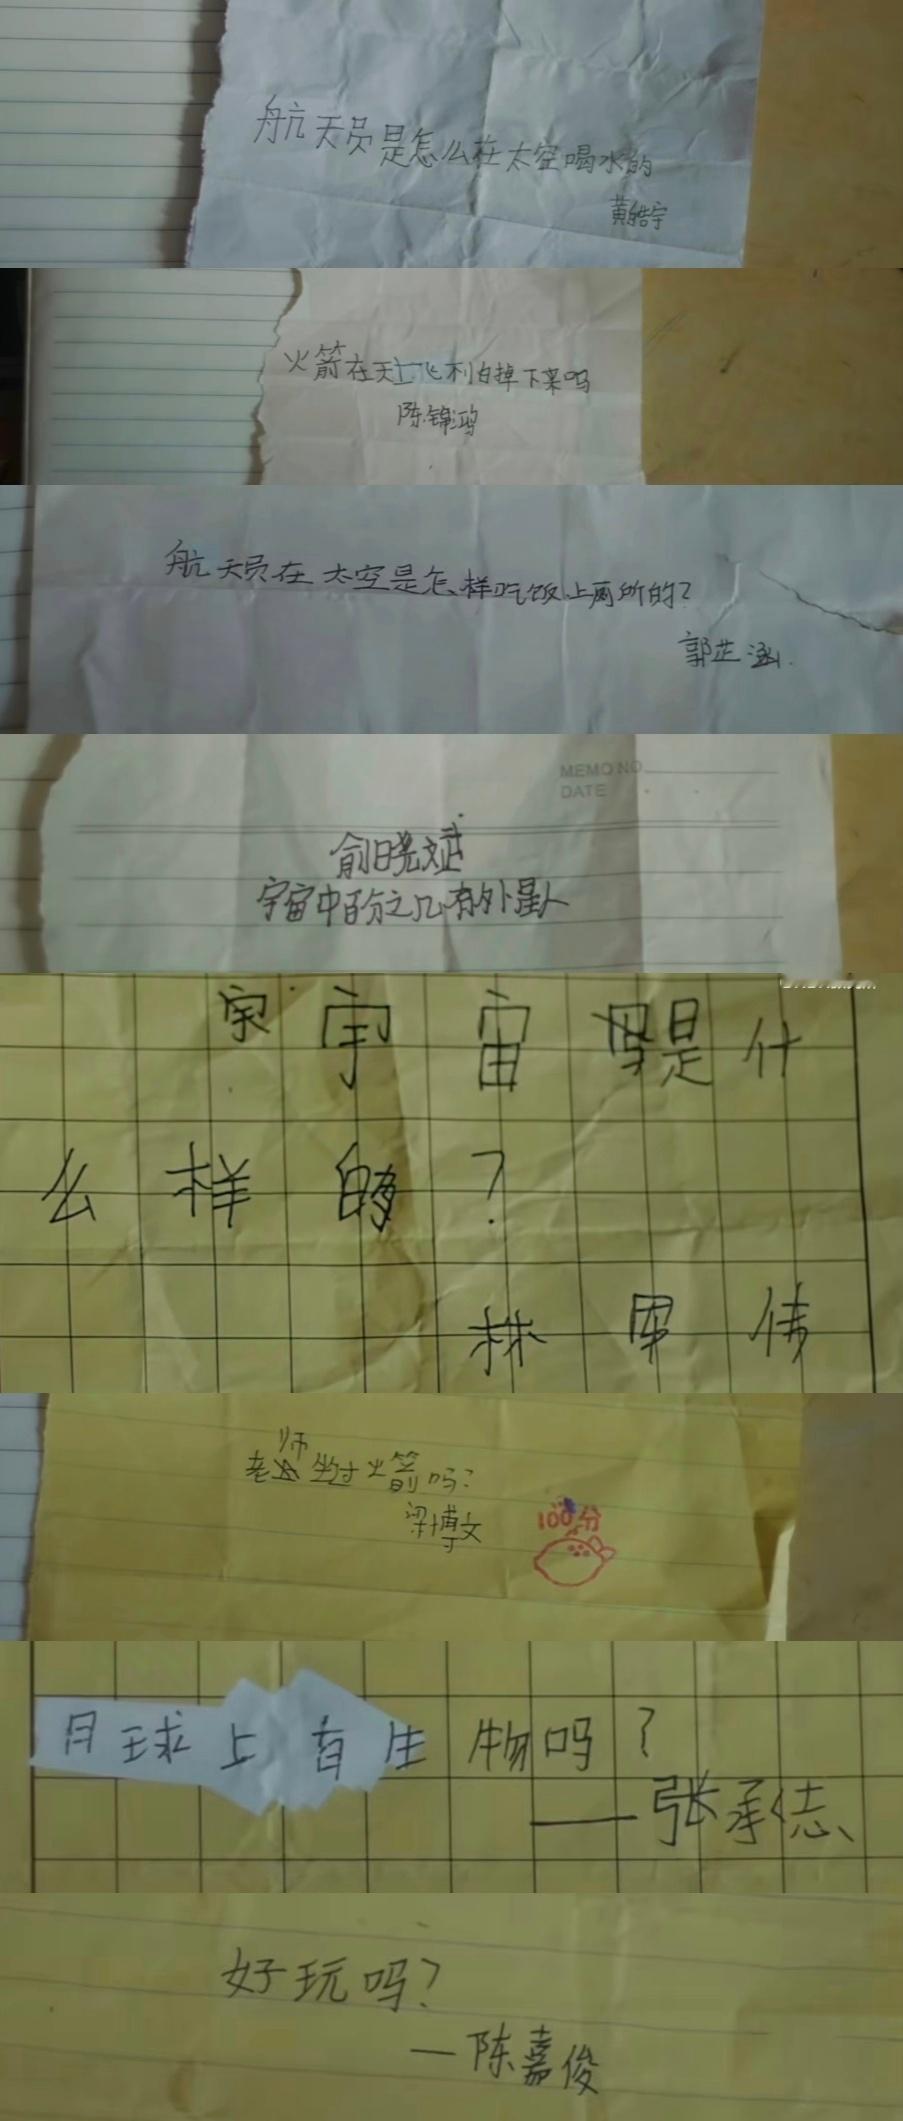 航天员是怎么在太空喝水的
黄皓宇
火箭在天上飞不怕掉下来吗
陈锦鸿
航天员在太空是怎样吃饭上厕所的?
郭芷涵.
MEMO NO.
DATE
俞晓斌
宇宙中百分之几有外星人
宇宙是什
么样的?
林军伟
老师坐过火箭吗?
梁博文
100分
月球上有生物吗?
——张承志
好玩吗?
—陈嘉俊